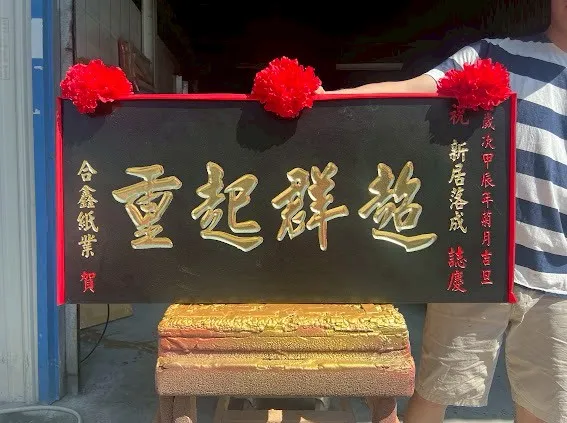 歲次甲辰年菊月吉旦
祝 新居落成 誌慶
超群起重
合鑫紙業 賀